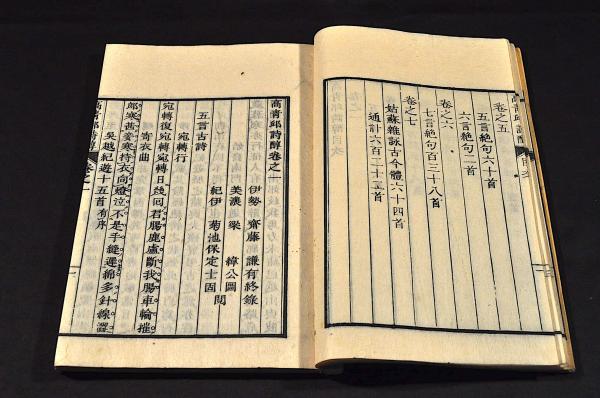 卷之五
五言絶句六十首
六言絶句二首
卷之六
七言絶句百三十八首
卷之七
姑蘇雜詠古今體六十四首
通計六百
高青邱詩醇目次
高青邱詩醇卷之一
伊勢 齋藤謙有終錄
美濃 梁 緯公圖
閲
紀伊 菊池保定士固
五言古詩
宛轉行
宛轉復宛轉日幾回君腸鹿盧斷我腸車輪摧
寄衣曲
郎寒甚妾寒持衣向燈泣不是手縫遲綿多針線澀
吳越紀遊十五首有序
高青邱詩醇 卷之一